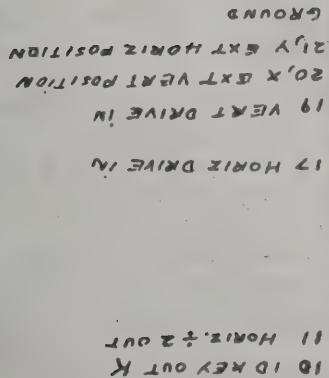 10 ID KEY OUT K
11 HORIZ. ÷ 2 OUT
17 HORIZ DRIVE IN
19 VERT DRIVE IN
20, X EXT VERT POSITION
21, Y EXT HORIZ POSITION
GROUND